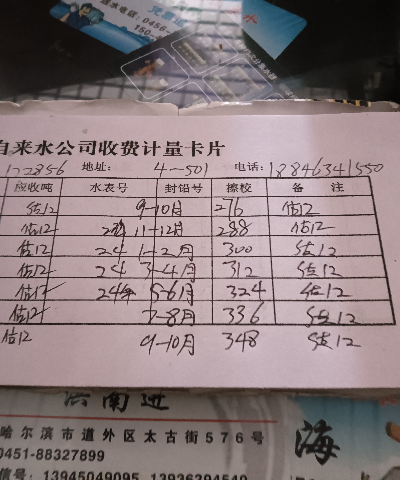 送水电话: 0456
150-
自来水公司收费计量卡片
122856 地址: 4-501 电话: 18846341550
应收吨 水表号 封铅号 擦校 备 注
估12 9-10月 276 估12
估12 11-12月 288 估12
估12 24 1-2月 300 估12
估12 24 3-4月 312 估12
估12 24年 5-6月 324 估12
估12 7-8月 336 估12
估12 9-10月 348 估12
海
哈尔滨市道外区太古街576号
0451-88327899
信号: 13945049095 13936394549